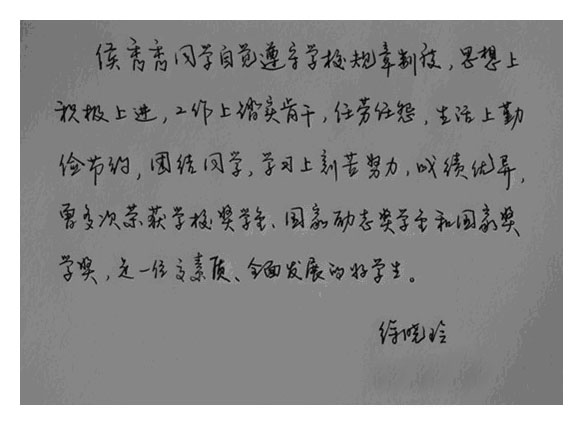 侯秀秀同学自觉遵守学校规章制度，思想上
积极上进，工作上踏实肯干，任劳任怨，生活上勤
俭节约，团结同学，学习上刻苦努力，成绩优异，
曾多次荣获学校奖学金、国家励志奖学金和国家奖
学奖，是一位高素质、全面发展的好学生。
徐晓玲